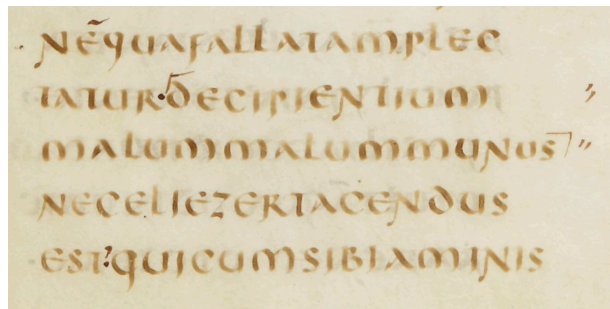 NĒQUAFALLATAMPLEC
TATUR·DECIPIENTIUM
MALUMMALUMMUNUS
NECELIEZERTACENDUS
EST?QUICUMSIBIAMINIS